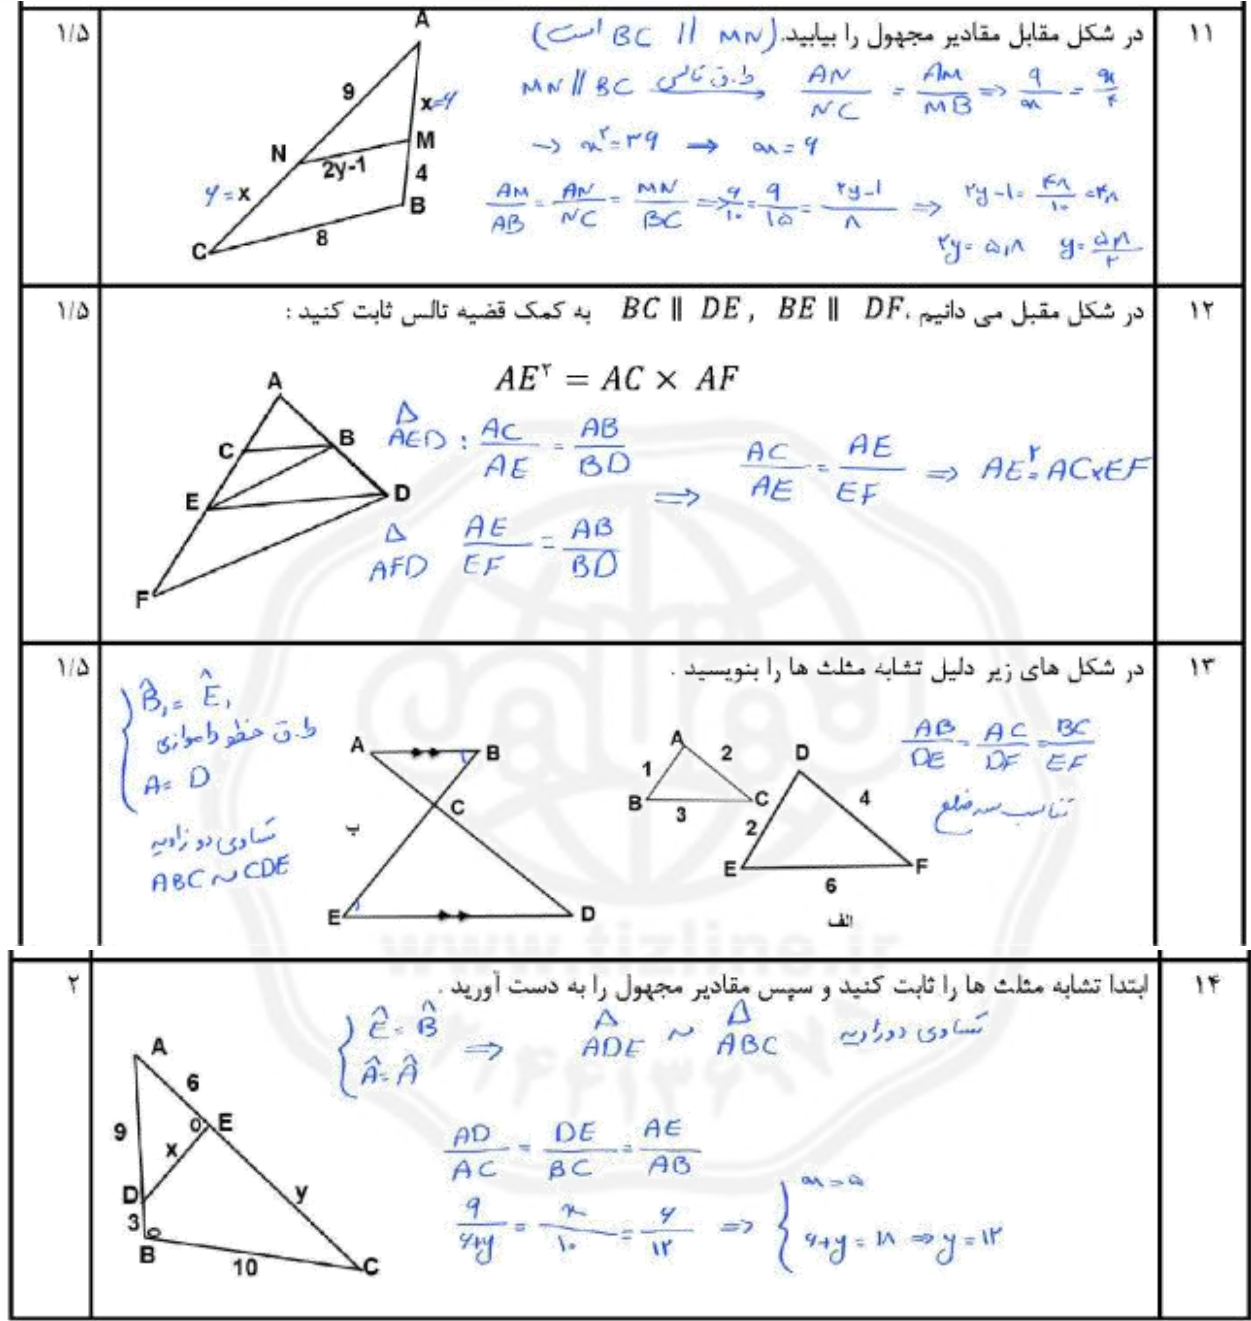 ۱۱ در شکل مقابل مقادیر مجهول را بیابید. (MN || BC است) ۱/۵
MN || BC ط.ق تالس → AN/NC = AM/MB ⇒ ۹/x = x/۴
→ x² = ۳۶ → x = ۶
AM/AB = AN/NC = MN/BC ⇒ ۶/۱۰ = ۹/۱۵ = ۲y-۱/۸ ⇒ ۲y-۱ = ۴۸/۱۰ = ۴٫۸
۲y = ۵٫۸ y = ۵٫۸/۲
A
9
x=۶
N
M
2y-1
۶=x
4
B
8
C
۱۲ در شکل مقبل می دانیم ،BC ∥ DE , BE ∥ DF به کمک قضیه تالس ثابت کنید : ۱/۵
AE² = AC × AF
AED : AC/AE = AB/BD
AFD AE/EF = AB/BD
⇒ AC/AE = AE/EF ⇒ AE² = AC×EF
A
C B
E D
F
۱۳ در شکل های زیر دلیل تشابه مثلث ها را بنویسید . ۱/۵
AB/DE = AC/DF = BC/EF
تناسب سه ضلع
A
1 2
B 3 C
D
2 4
E 6 F
الف
A B
C
E D
ب
B̂₁ = Ê₁
ط.ق خطوط موازی
A = D
تساوی دو زاویه
ABC ~ CDE
www.tizline.ir
۱۴ ابتدا تشابه مثلث ها را ثابت کنید و سپس مقادیر مجهول را به دست آورید . ۲
Ê = B̂
Â = Â
⇒ ADE ~ ABC تساوی دو زاویه
AD/AC = DE/BC = AE/AB
۹/۶+y = x/۱۰ = ۶/۱۲ ⇒ x = ۵
۶+y = ۱۸ ⇒ y = ۱۲
A
6
9 E
x
D y
3
B 10 C